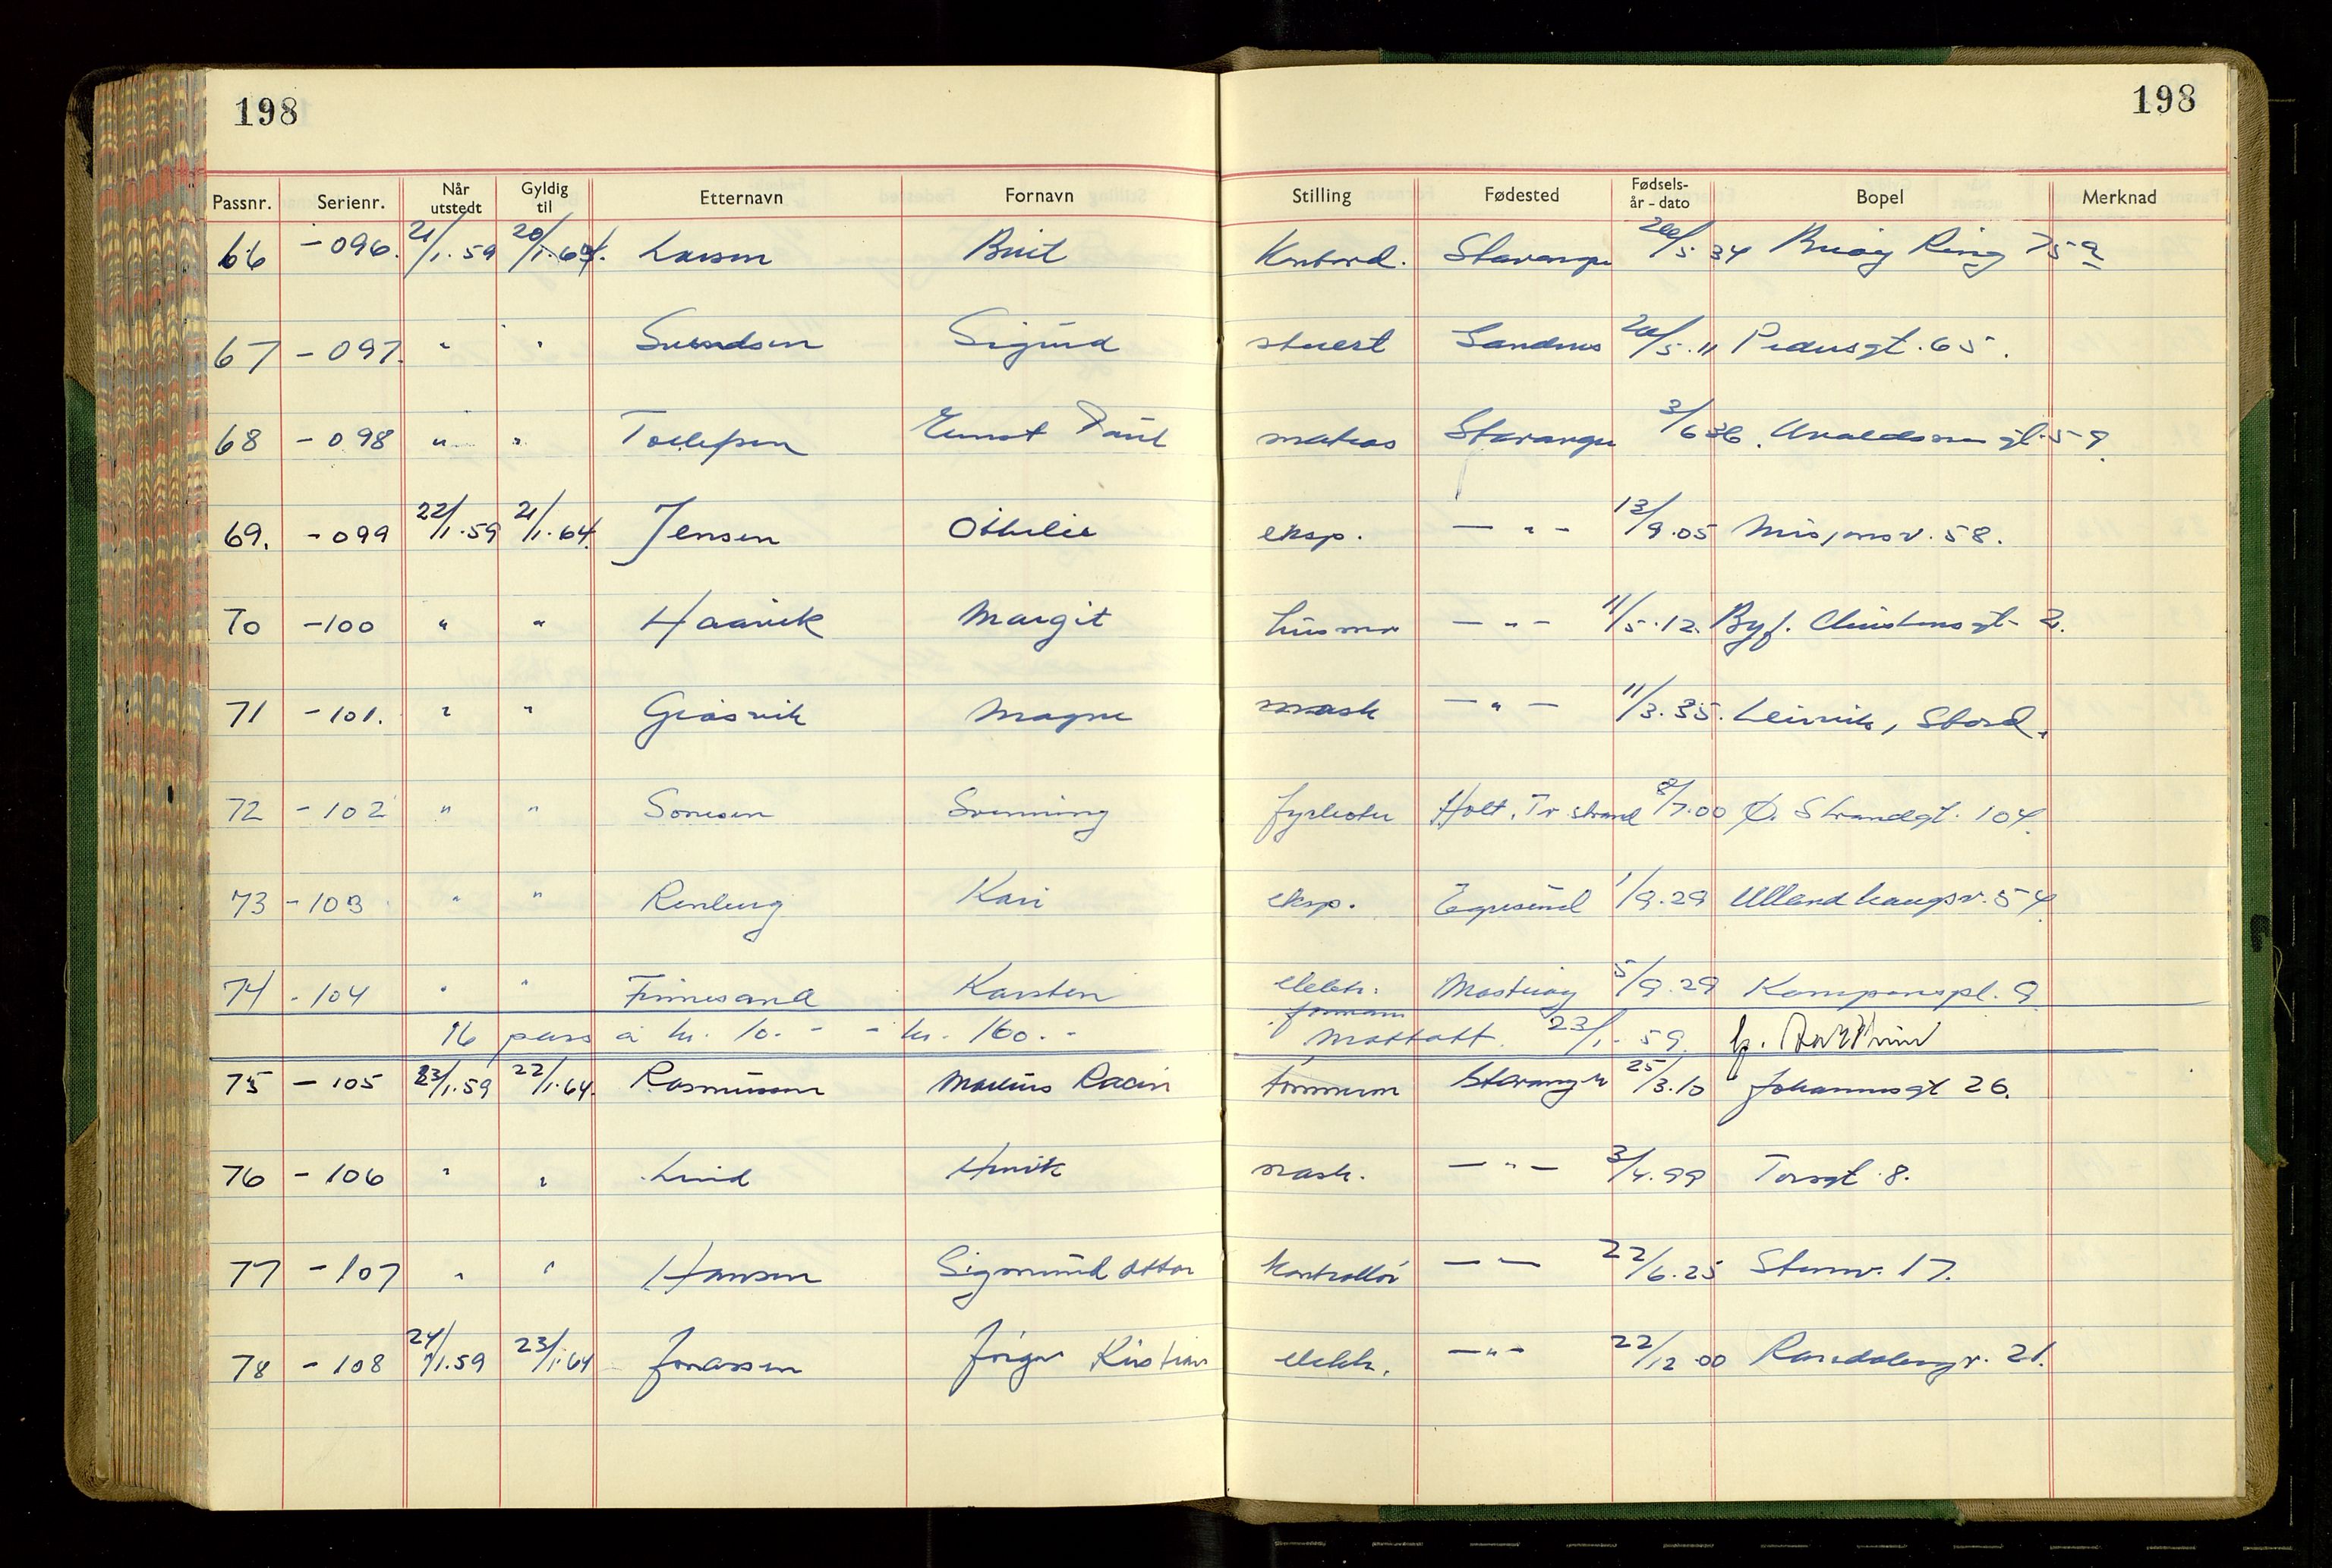 198 198
Passnr. Serienr. Når utstedt Gyldig til Etternavn Fornavn Stilling Fødested Fødsels- år - dato Bopel Merknad
66 -096. 21/1.59 20/1.64. Larsen Brit Kontord. Stavanger 26/5.34 Buøy Ring 75a
67 -097. " " Svendsen Sigurd stuert Sandnes 20/5.11 Pedersgt. 65.
68 -098 " " Tollefsen Ernst Paul matros Stavanger 3/6 36. Avaldsnesgt. 59.
69. -099 22/1.59 21/1.64. Jensen Othelie eksp. — " — 13/9.05 Misjonsv. 58.
70 -100 " " Haavik Margit husmor — " — 11/5.12. Byf. Christensgt. 2.
71 -101. " " Gråsvik Magne mask — " — 11/3.35. Leirvik, Stord.
72 -102 " " Sørensen Svenning fyrbøter Holt. Tv.strand 8/7.00 Ø. Strandgt. 104.
73 -103 " " Renberg Kari eksp. Egersund 1/9.29 Ullandhaugsv. 54.
74 -104 " " Finnesand Karsten elektr. formann Mosterøy 5/9.29 Kampenspl. 9
16 pass à kr. 10.- - kr. 160.- Mottatt. 23/1-59.
75 -105 23/1.59 22/1.64. Rasmussen Markus Racin tømmerm Stavanger 25/3.10 Johannesgt 26.
76 -106 " " Lund Henrik mask. — " — 3/4.99 Torsgt. 8.
77 -107 " " Hansen Sigmund Ottar kontrollør — — 22/6.25 Stemv. 17.
78 -108 24/1.59 23/1.64 Jonassen Jørgen Kristian elektr. — " — 22/12.00 Randabergv. 21.